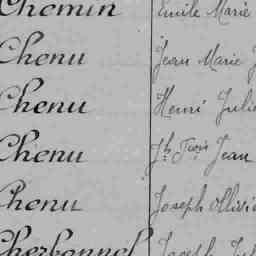 Chemin Emile Marie
Chenu Jean Marie J
Chenu Henri Julie
Chenu Jh Fçois Jean
Chenu Joseph Ollivi
Cherbonnel Joseph Jul